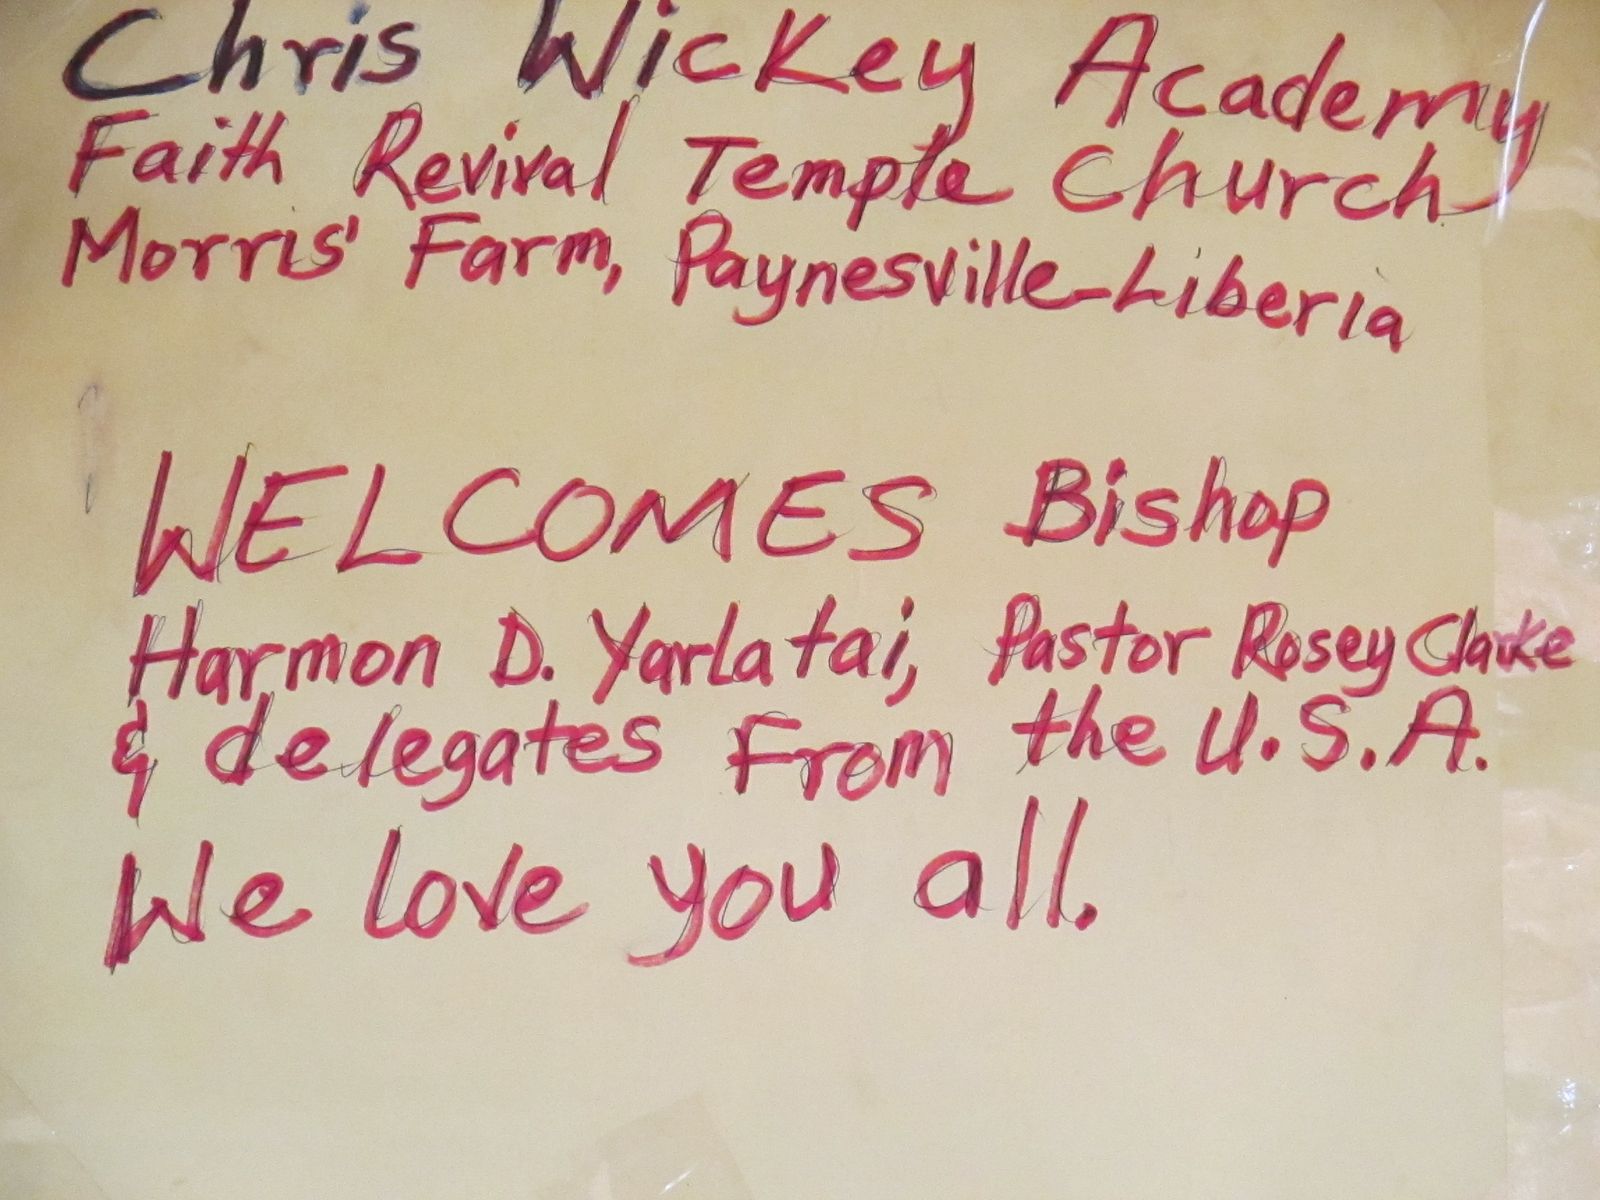 Chris Wickey Academy
Faith Revival Temple Church
Morris' Farm, Paynesville-Liberia
WELCOMES Bishop
Harmon D. Yarlatai, Pastor Rosey Clarke
& delegates From the U.S.A.
We love you all.